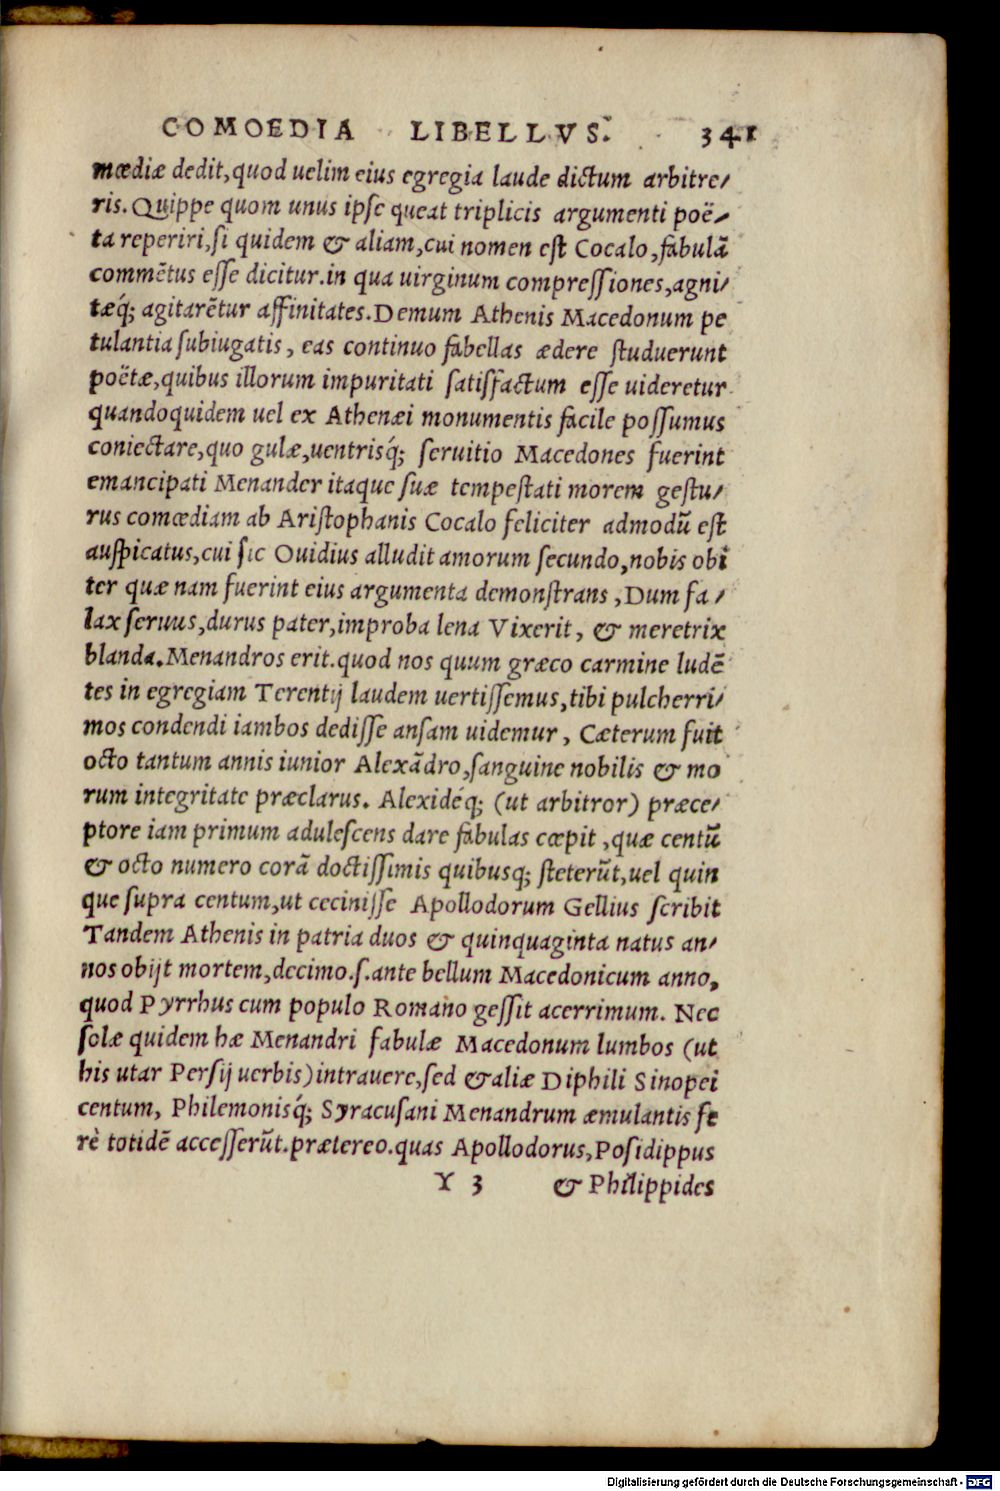 COMOEDIA LIBELLVS. 341
mœdiæ dedit,quod uelim eius egregia laude dictum arbitre/
ris. Quippe quom unus ipse queat triplicis argumenti poë/
ta reperiri,si quidem & aliam,cui nomen est Cocalo,fabulā
commētus esse dicitur.in qua uirginum compressiones,agni/
tæq́; agitarētur affinitates.Demum Athenis Macedonum pe
tulantia subiugatis, eas continuo fabellas ædere studuerunt
poëtæ,quibus illorum impuritati satisfactum esse uideretur
quandoquidem uel ex Athenæi monumentis facile possumus
coniectare,quo gulæ,uentrisq́; seruitio Macedones fuerint
emancipati Menander itaque suæ tempestati morem gestu/
rus comœdiam ab Aristophanis Cocalo feliciter admodū est
auspicatus,cui sic Ouidius alludit amorum secundo,nobis obi
ter quæ nam fuerint eius argumenta demonstrans ,Dum fa /
lax seruus,durus pater,improba lena Vixerit, & meretrix
blanda.Menandros erit.quod nos quum græco carmine ludē
tes in egregiam Terentij laudem uertissemus,tibi pulcherri/
mos condendi iambos dedisse ansam uidemur, Cæterum fuit
octo tantum annis iunior Alexādro,sanguine nobilis & mo
rum integritate præclarus. Alexidéq; (ut arbitror) præce/
ptore iam primum adulescens dare fabulas cœpit ,quæ centū
& octo numero corā doctissimis quibusq; steterūt,uel quin
que supra centum,ut cecinisse Apollodorum Gellius scribit
Tandem Athenis in patria duos & quinquaginta natus an/
nos obijt mortem,decimo.s.ante bellum Macedonicum anno,
quod Pyrrhus cum populo Romano gessit acerrimum. Nec
solæ quidem hæ Menandri fabulæ Macedonum lumbos (ut
his utar Persij uerbis)intrauere,sed &aliæ Diphili Sinopei
centum, Philemonisq́; Syracusani Menandrum æmulantis fe
rè totidē accesserūt.prætereo.quas Apollodorus,Posidippus
Y 3 & Philippides
Digitalisierung gefördert durch die Deutsche Forschungsgemeinschaft - DFG